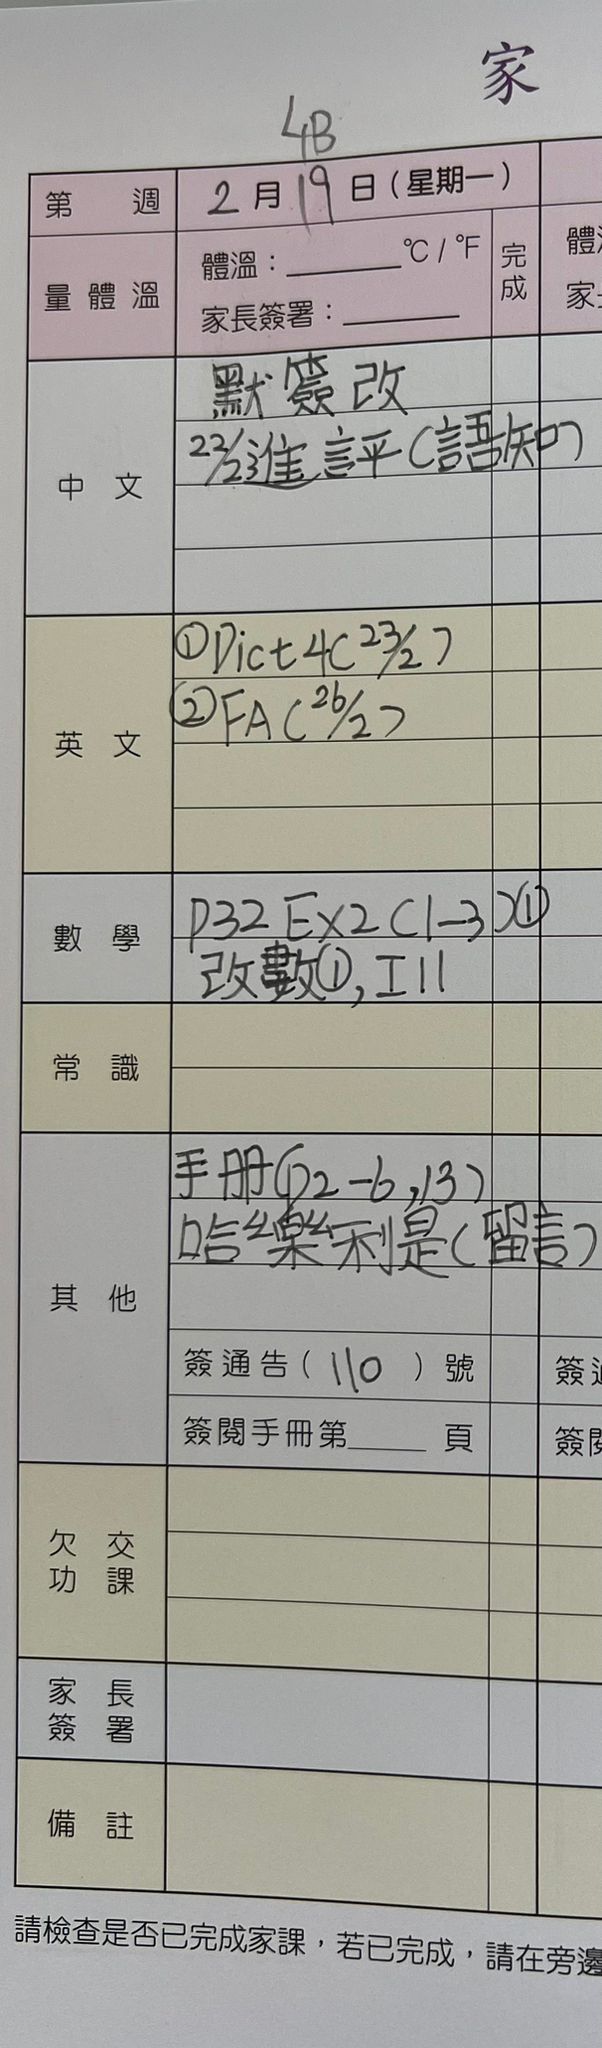 家
4B
第 週 2月19日(星期一)
量體溫 體溫:______°C/°F 完成 體
家長簽署:______ 家
中文 默簽改
22/23進評(語知)
英文 ①Dict 4(23/2)
②FA(26/2)
數學 P32 Ex2(1-3)①
改數①, I11
常識
其他 手冊(P2-6,13)
哈樂利是(留言)
簽通告(110)號 簽通
簽閱手冊第____頁 簽閱
欠交功課
家長簽署
備註
請檢查是否已完成家課,若已完成,請在旁邊